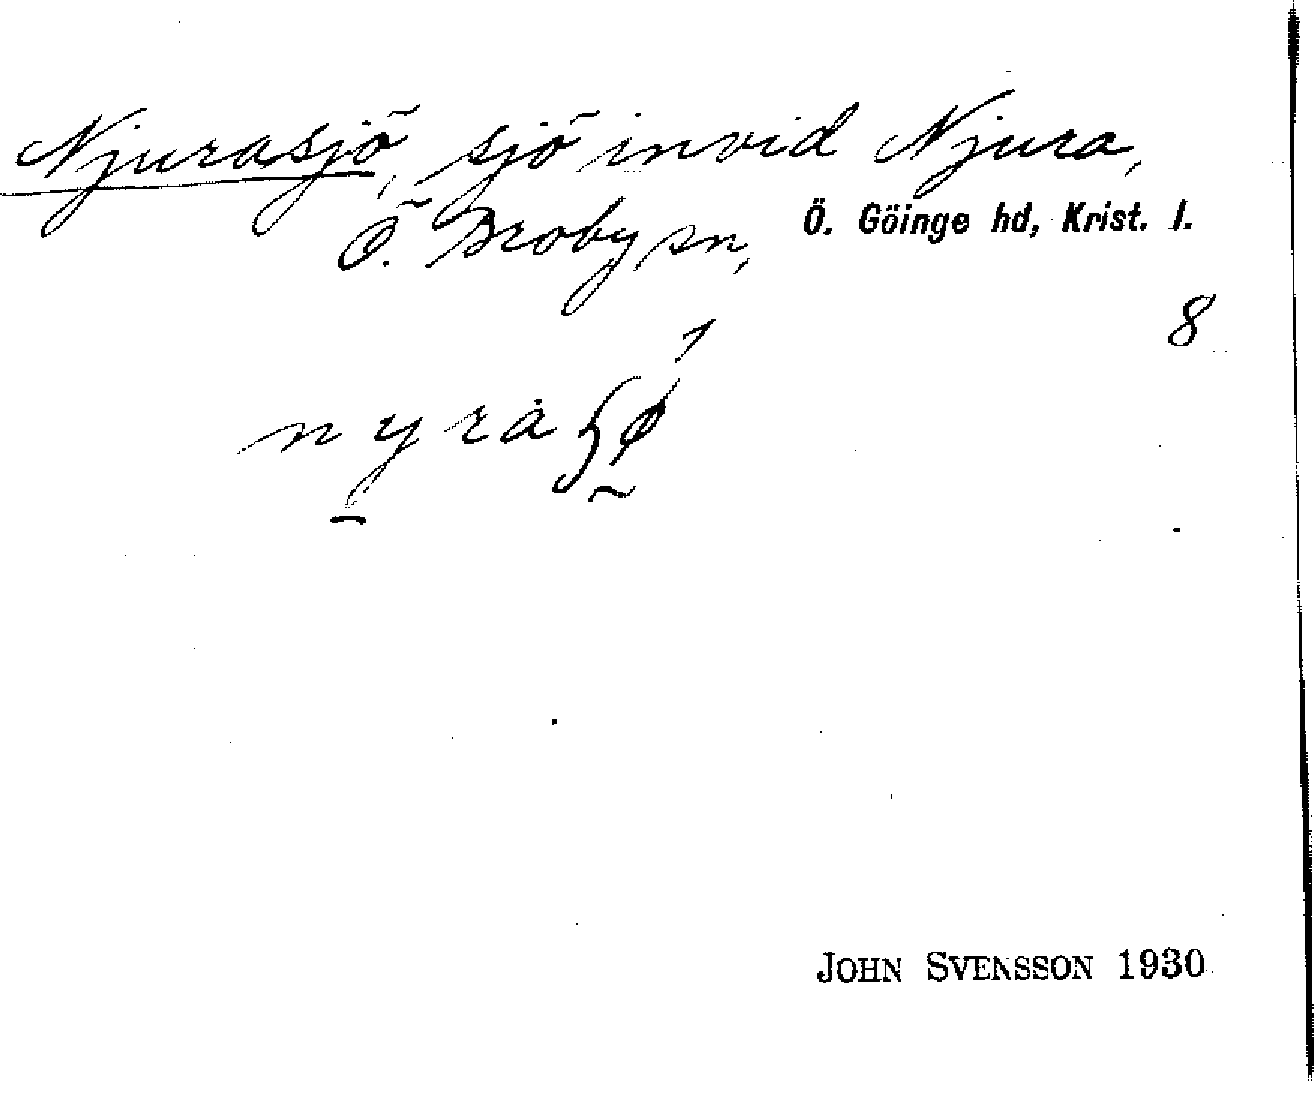 Njurasjö, sjö invid Njura,
Ö. Broby sn, Ö. Göinge hd, Krist. l.
8
JOHN SVENSSON 1930